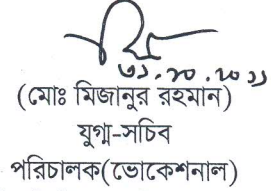 ৩১.১০.২০১১
(মোঃ মিজানুর রহমান)
যুগ্ম-সচিব
পরিচালক(ভোকেশনাল)